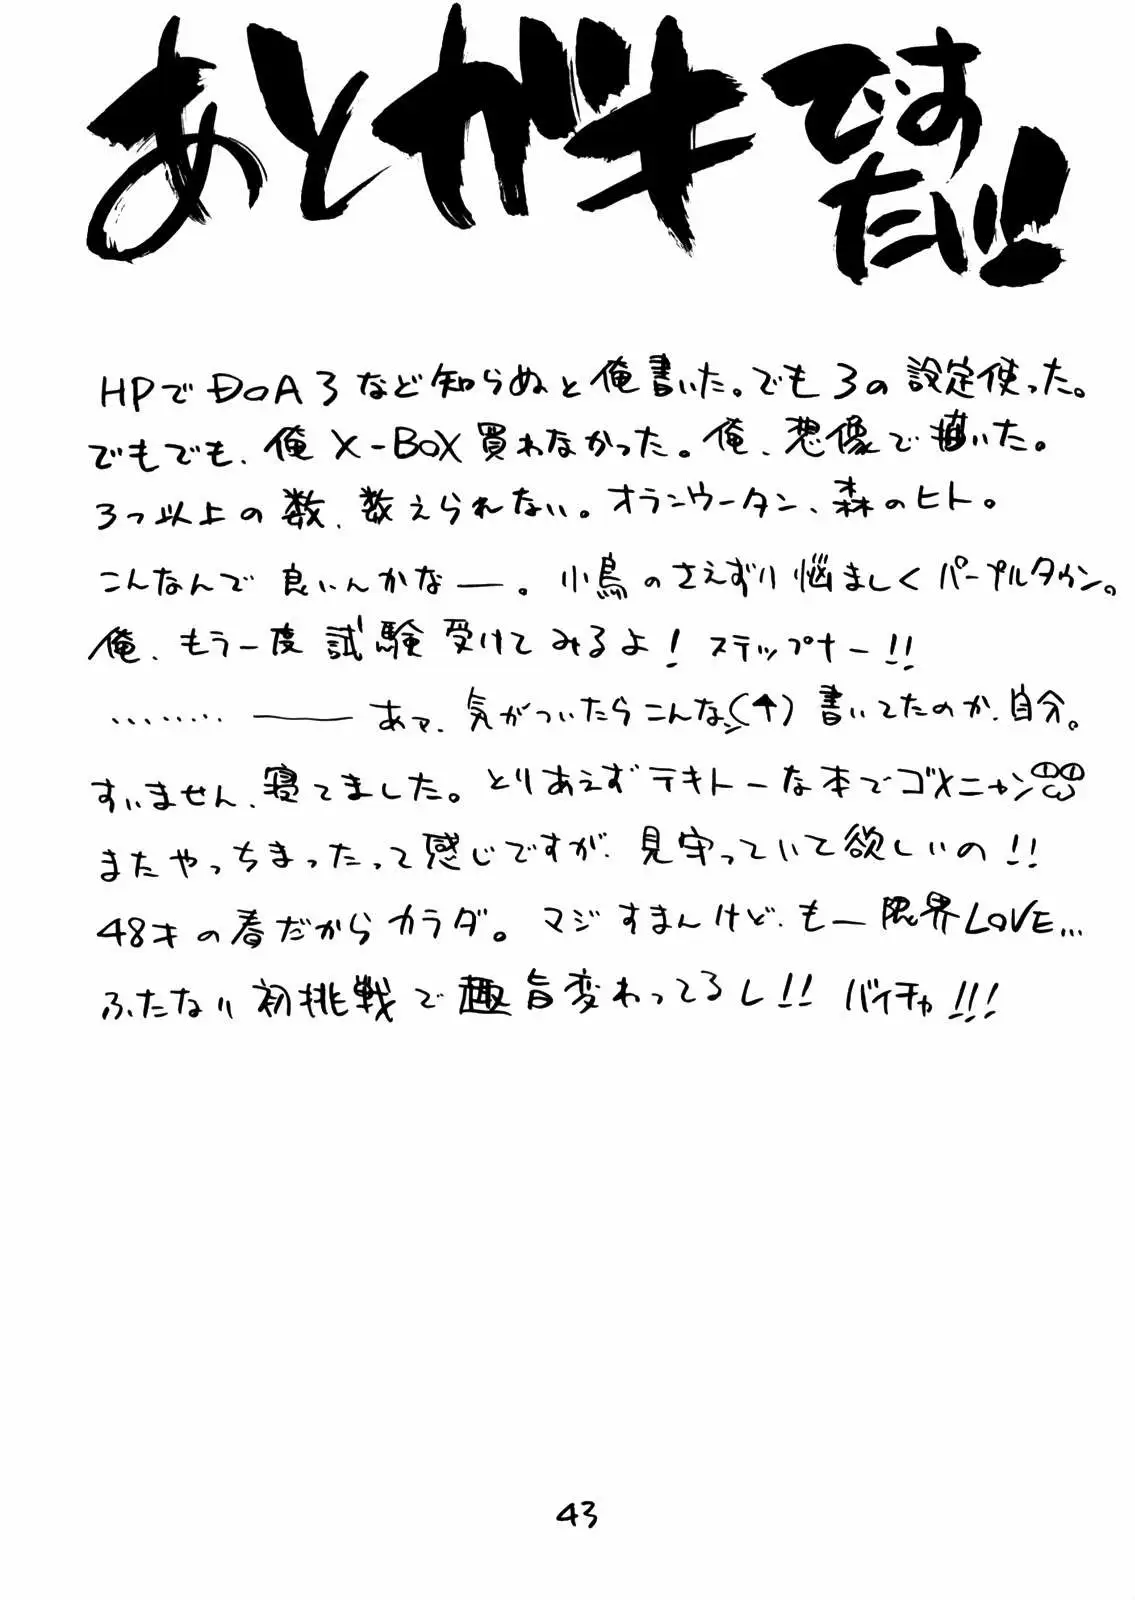 あとがきですたい!!
HPでDOA3など知らぬと俺書いた。でも3の設定使った。
でもでも、俺X-BOX買わなかった。俺、想像で描いた。
3つ以上の数、数えられない。オランウータン、森のヒト。
こんなんで良いんかなー。小鳥のさえずり悩ましくパープルタウン。
俺、もう一度試験受けてみるよ!ステップナー!!
………ーあっ、気がついたらこんな(↑)書いてたのか、自分。
すいません、寝てました。とりあえずテキトーな本でゴメニャン
またやっちまったって感じですが、見守っていて欲しいの!!
48才の春だからカラダ。マジすまんけど、もー限界LOVE…
ふたなり初挑戦で趣旨変わってるし!!バイチャ!!!
43